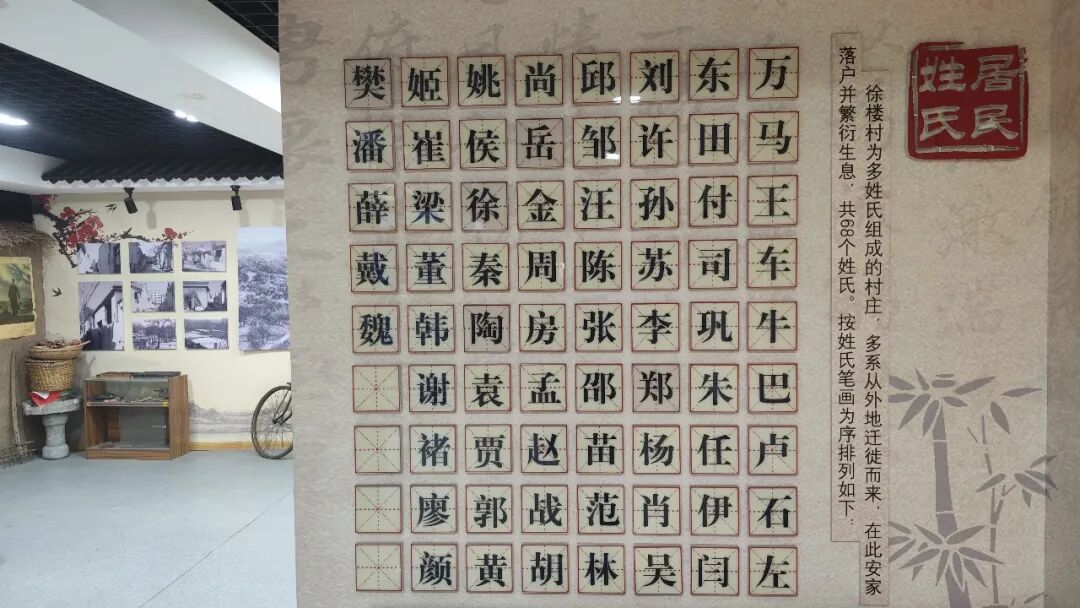 居民
姓氏
徐楼村为多姓氏组成的村庄，多系从外地迁徙而来，在此安家
落户并繁衍生息，共68个姓氏。按姓氏笔画为序排列如下：
万马王车牛巴卢石左
东田付司巩朱任伊闫
刘许孙苏李郑杨肖吴
邱邹汪陈张邵苗范林
尚岳金周房孟赵战胡
姚侯徐秦陶袁贾郭黄
姬崔梁董韩谢褚廖颜
樊潘薛戴魏